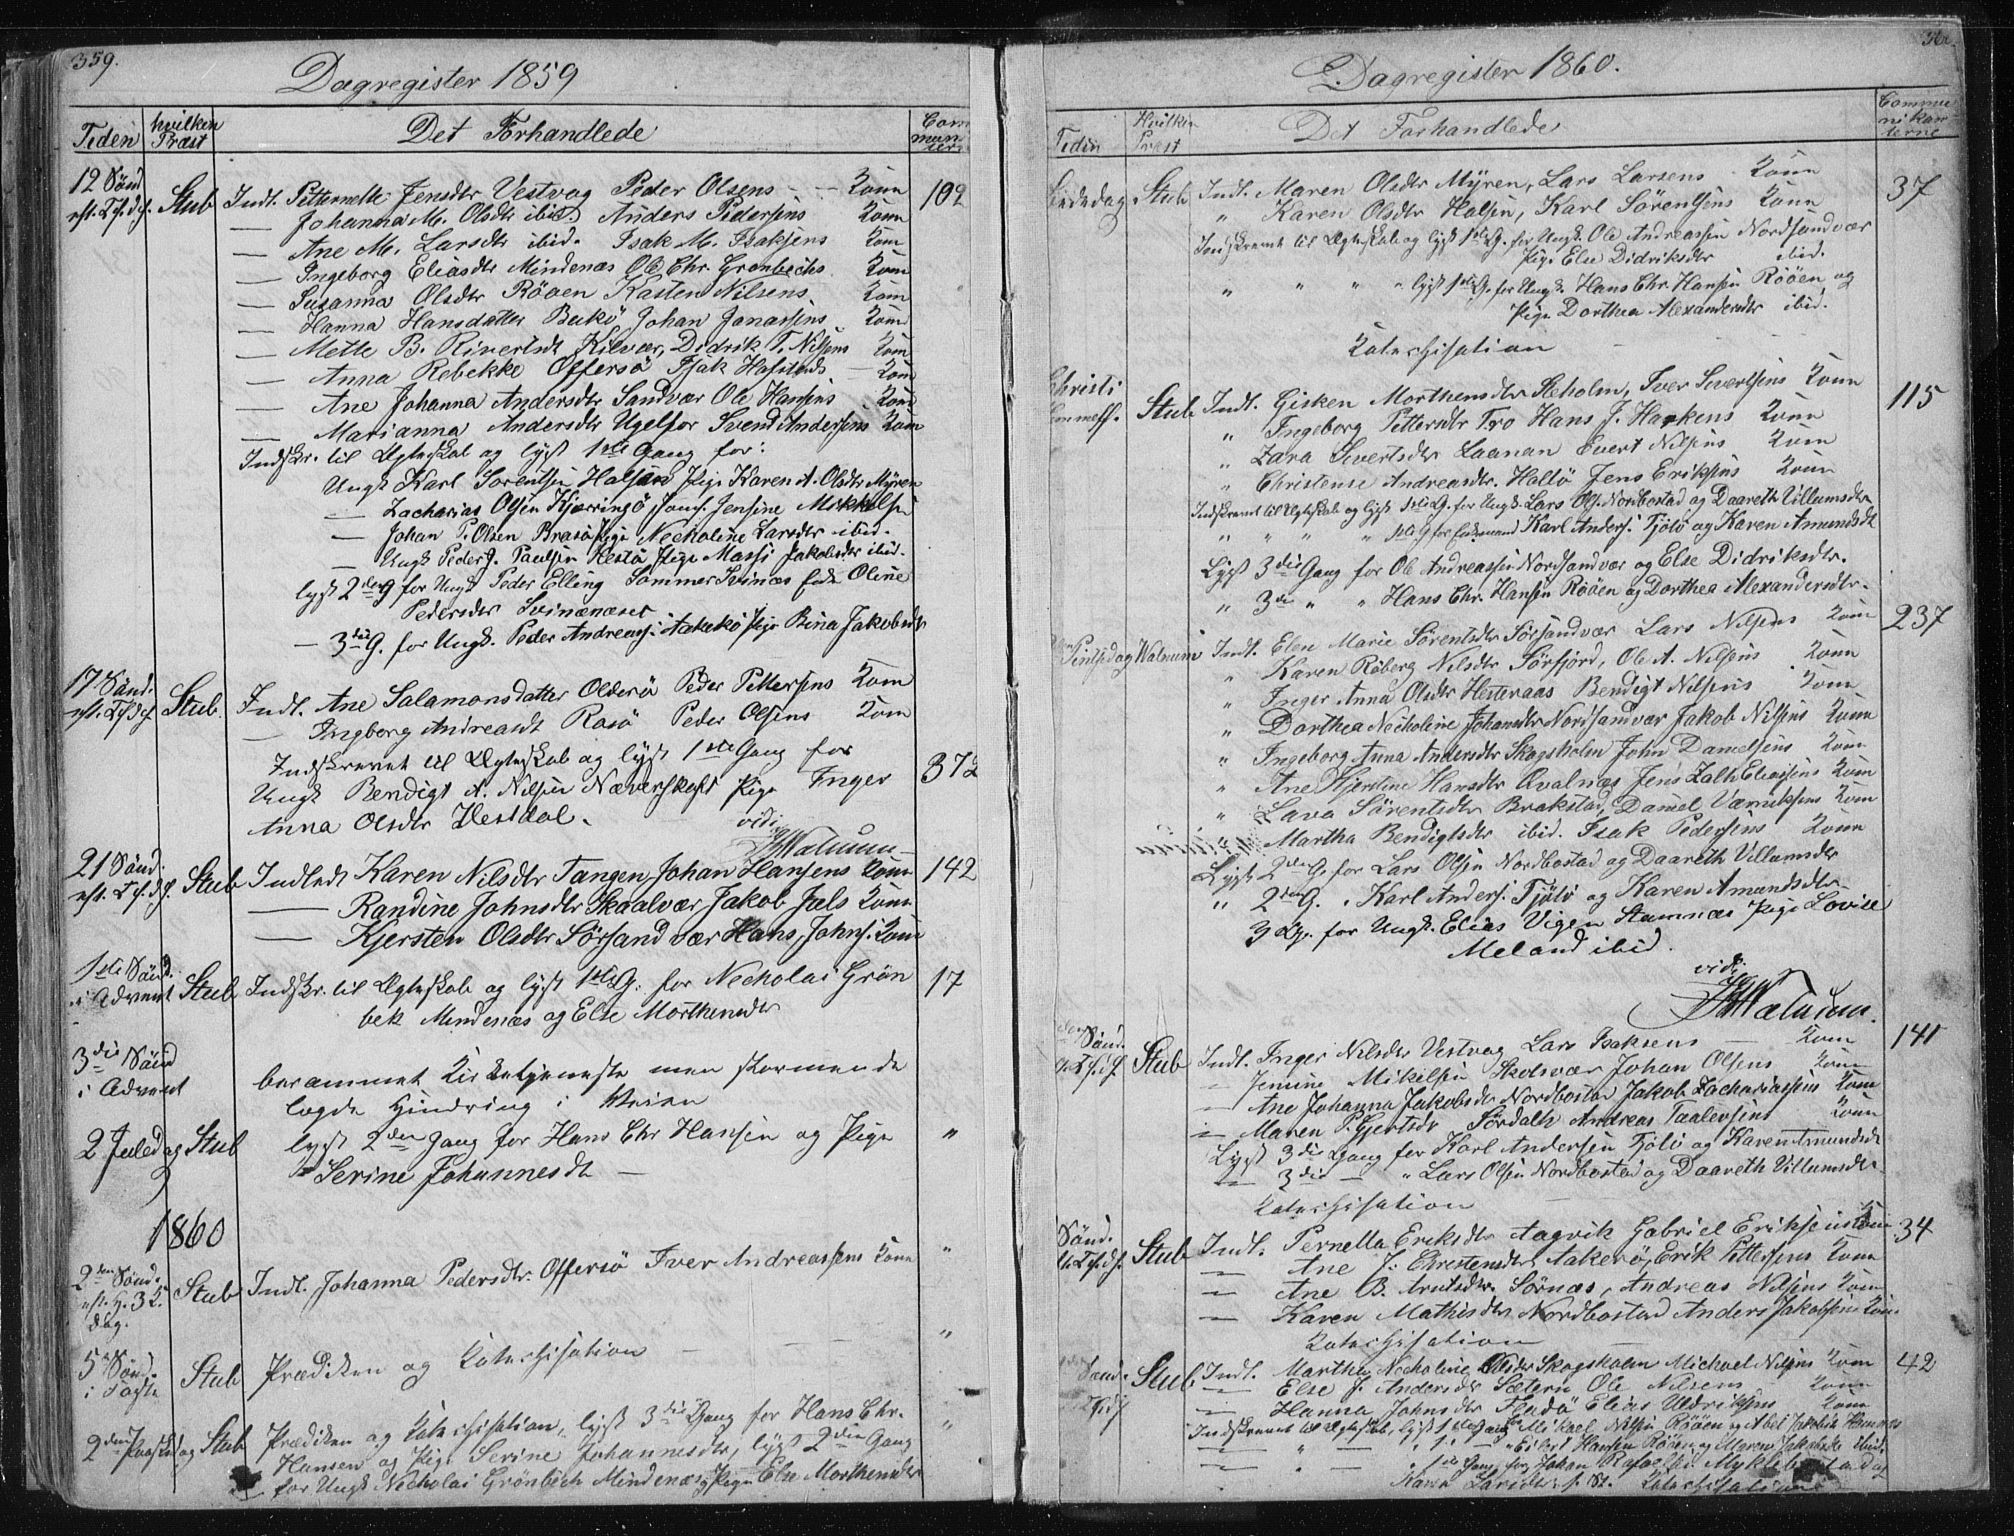 359.
Dagregister 1859
Tiden hvilken Præst Det Forhandlede Com mun ter
12 Sønd eft. Tf. df. Stub Indl. Petternelle Jensdtr Vestvog Peder Olsens - - Konn 102
— Johanna M. Olsdtr ibid Anders Pedersens Konn
— Ane M. Larsdtr ibid. Isak M. Isaksens Kom
— Ingeborg Eliasdtr Mindenæs Ole Chr. Grønbechs Kom
— Susanna Olsdtr Røøen Kasten Nilsens Kom
— Hanna Hansdatter Bukø Johan Jonassens Kom
— Mette B. Rivertsdt Kilvær, Didrik T. Nilsens Kom
— Anna Rebekke Offersø Isak Hofstads — Kom
— Ane Johanna Andersdtr Sandvær Ole Hansens Kom
— Marianna Andersdtr Ugelfor Svend Andersens Kom
Indskr. til Ægteskab og lyst 1ste Gang for:
Ungk Karl Sorentsen Halsen Pige Karen A. Olsdtr Myren
— Zacharias Olsen Kjærringø Jomf. Jensine Mikkelsen
— Johan P. Olsen Brasø Pige Necholine Larsdtr ibid.
— Ungk Peder J. Paulsen Hestø Pige Massi Jakobsdtr ibid.
lyst 2den G for Ungk Peder Elling Sommer Svinæs Enke Oline
Pedersdtr Svinænæset
— 3die G. for Ungk. Peder Andreass. Aakekø Pige Bina Jakobsdtr
17 Sønd. eft. Tf. df. Stub. Indl. Ane Salamonsdatter Olderø Peder Pettersens Kom
— Ingborg Andreasdt Rosø Peder Olsens Kom
Indskrevet til Ægteskab og lyst 1ste Gang for
Ungk Bendigt A. Nilsen Næverskoft Pige Inger 372
Anna Olsdtr Vestdal.
vidi
Walnum
21 Sønd. eft. Tf. df. Stub Indledt Karen Nilsdtr Tangen, Johan Hansens Konn 142
— Randine Johnsdtr Skaalvær Jakob Jæls Konn
— Kjersten Olsdtr Sørsandvær Hans Johns. Konn
1ste Sønd. i Advent Stub Indskr. til Ægteskab og lyst 1ste G. for Necholai Grøn 17
bek Mindenæs og Else Morthensdtr
3die Sønd i Advent berammet Kirketjeneste men stormende
lagde Hindring i Veien
2 Juledag Stub lyst 2den Gang for Hans Chr Hansen og Pige "
Serine Johannesdt —
1860
2den Sønd. eft. H. 3 K. dag. Stub Indl. Johanna Pedersdtr. Offersø Iver Andreassens Konn "
5 Sønd. i Faste Stub Prædiken og Katechisation "
2den Paaskedag Stub Prædiken og Katechisation, lyst 3die Gang for Hans Chr. "
Hansen og Pige Serine Johannesdtr, lyst 2den Gang
for Ungk Necholai Grönbech Mindenæs, Pige Else Morthensdtr
Dagregister 1860.
Tiden Hvilken Præst Det Forhandlede Commu nikan terne
Bededag Stub Indl. Maren Olsdtr Myren, Lars Larsens Konn 37
" Karen Olsdtr Halsen, Karl Sörentsens Konn
Indskrevet til Ægteskab og lyst 1ste G. for Ungk. Ole Andreassen Nordsandvær
Pige Else Didriksdtr ibid.
" " " " lyst 1ste G. for Ungk. Hans Chr. Hansen Røöen og
Pige Dorthea Alexandersdtr ibid.
Katechisation —
Christi Himmelf. Stub Indl. Gisken Morthensdtr Steholm, Iver Sivertsens Konn 115
" Ingeborg Pettersdtr Tro Hans J. Haakens Konn
" Zara Sivertsdtr Laanan Evert Nilsens Kom
" Christense Andreasdtr. Halló Jens Eriksens Konn
Indskrevet til Ægteskab og lyst 1ste G. for Ungk. Lars Ols. Nordbostad og Daareth Villumsdtr
" " " " 1ste G for Enkemand Karl Anders. Tjötö og Karen Amundsdt
Lyst 3die Gang for Ole Andreassen Nordsandvær og Else Didriksdtr.
" 3die " " Hans Chr. Hansen Röøen og Dorthea Alexandersdtr.
Pintsedag Walnum Indl. Elen Marie Sørentsdtr Sörsandvær Lars Nilsens Kom 237
" Karen Röberg Nilsdtr Sörfjord, Ole A. Nilsens Konn
" Inger Anna Olsdtr Hestevaas Bendigt Nilsens Konn
" Dorthea Necholine Johansdtr Nordsandvær Jakob Nilsens Konn
" Ingeborg Anna Andersdtr Skogsholm John Danielsens Kom
" Ane Kjerstine Hansdtr Qvalnæs Jens Zakh Eliassens Kom
" Lava Sörentsdtr Brakstad, Daniel Værnikssens Kom
" Martha Bendigtsdtr ibid. Isak Pedersens Konn
Lyst 2den G. for Lars Olsen Nordbostad og Daareth Villumsdtr
" 2den G. " Karl Anders. Tjötö og Karen Amundsdtr
3 G. for Ungk. Elias Vigen Stamnæs Pige Lovise
Meland ibid.
vidi
Walnum.
Sønd. e. Tf. df. Stub Indl. Inger Nilsdtr Vestvog Lars Isaksens — Kom 141
— Jensine Mikelsen Skotsvær Johan Olsens Konn
— Ane Johanna Jakobsdtr Nordbostad Jakob Zachariassens Kom
— Maren P. Gjertsdtr Sördalh Andreas Taalevsens Konn
Lyst 3die Gang for Karl Andersen Tjötö og Karen Amundsdt
— 3die — " Lars Olsen Nordbostad og Daareth Villumsdtr
Katechisation —
Sønd. e. Tf. df. Stub Indl. Pernella Eriksdtr Aagvik Gabriel Eriksens Kom 34
— Ane J. Christensdtr Aakerö, Erik Pettersens Kom
— Ane B. Arntsdtr Sörnæs, Andreas Nilsens Kom
— Karen Mathisdtr Nordbostad Anders Jakobsens Kom
Katechisation —
Sønd. Stub Indl. Martha Necholine Olsdtr Skogsholm Michael Nilsens Kom 42
— Else J. Andersdtr Sæteren Ole Nilsens Konn
— Hanna Johnsdtr Fladö Elias Uldriksens Kom
Indskrevet til Ægteskab, lyst 1ste Gang for Mikael Nilsen Röøen og Abel Jakobsdt
— " — " 1 " — " Eilert Hansen Röøen og Maren Jakobsdt ibid.
— " — " 1ste Gang for Johan Rafaelsen Myklebostad og
Maren Larsdtr. Katechisation